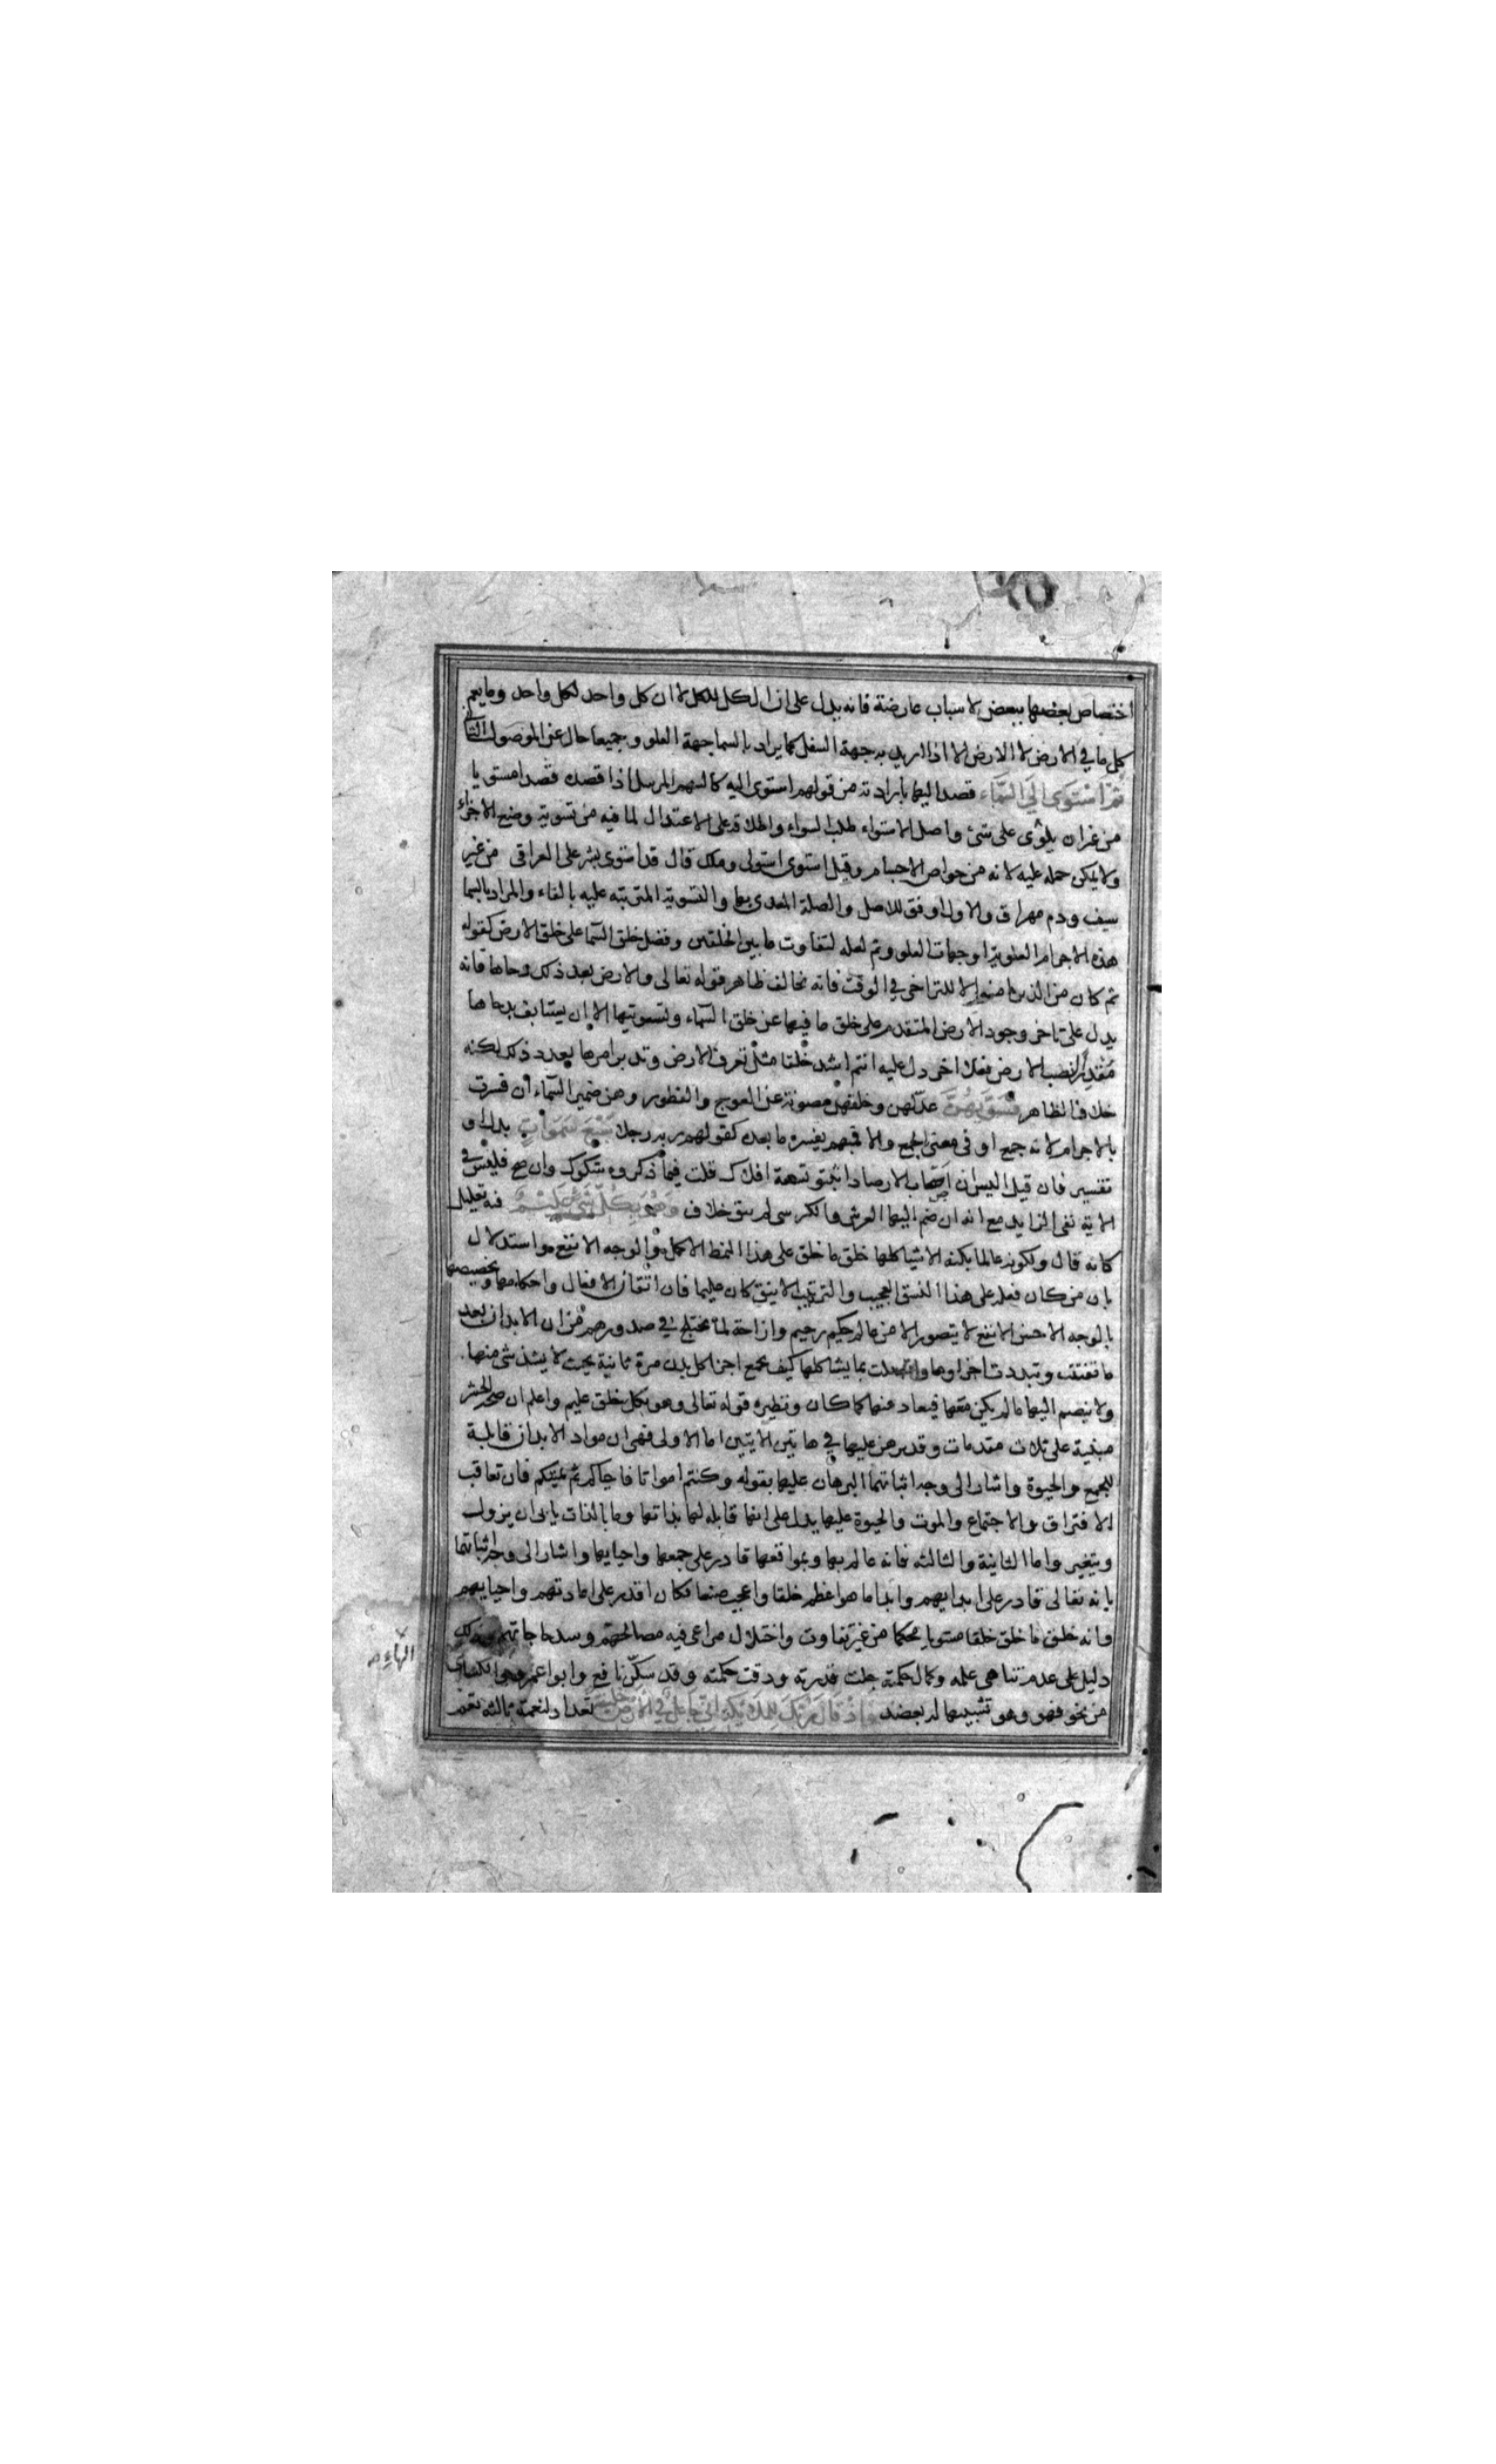 اختصاص بعضها ببعض لاسباب عارضة فانه يدل على ان الكل للكل لا ان كل واحد لكل واحد وما يعم
كل ما في الارض لا الارض الا اذا اريد به جهة السفل كما يراد بالسما جهة العلو وجميعا حال عن الموصول الثاني
ثُمَّ اسْتَوَى إِلَى السَّمَاء قصد اليها بارادته من قولهم استوى اليه كالسهم المرسل اذا قصده قصدا مستويا
من غير ان يلوى على شئ واصل الاستواء طلب السواء واطلاقه على الاعتدال لما فيه من تسوية وضع الاجزاء
ولا يمكن حمله عليه لانه من خواص الاجسام وقيل استوى استولى وملك قال قد استوى بشر على العراق من غير
سيف ودم مهراق والاول اوفق للاصل والصلة المعدى بها والتسوية المترتبه عليه بالفاء والمراد بالسما
هذه الاجرام العلوية او جهات العلو وثم لعله لتفاوت ما بين الخلقين وفضل خلق السما على خلق الارض كقوله
ثم كان من الذين امنوا لا للتراخى في الوقت فانه يخالف ظاهر قوله تعالى والارض بعد ذلك دحاها فانه
يدل على تاخر وجود الارض المتقدم على خلق ما فيها عن خلق السماء وتسويتها الا ان يستانف بدحاها
مقدرا لنصب الارض فعلا اخر دل عليه انتم اشد خلقا مثل تعرف الارض وتدبر امرها بعد ذلك لكنه
خلاف الظاهر فَسَوَّيهُنَّ عدلهن وخلقهن مصونة عن العوج والفطور وهن ضمير السماء ان فسرت
بالاجرام لانه جمع او فى معنى الجمع والا فمبهم يفسره ما بعده كقولهم ربه رجلا سَبْعَ سَمَوَاتٍ بدل او
تفسير فان قيل اليس ان اصحاب الارصاد اثبتو تسعة افلاك قلت فيما ذكروه شكوك وان صح فليس في
الاية نفى الزايد مع انه ان ضم اليها العرش والكرسى لم يبق خلاف وَهُوَ بِكُلِّ شَيْءٍ عَلِيمٌ فيه تعليل
كانه قال ولكونه عالما بكنه الاشيا كلها خلق ما خلق على هذا النمط الاكمل والوجه الانفع واستدلال
بان من كان فعله على هذا النسق العجيب والترتيب الانيق كان عليما فان اتقان الافعال واحكامها وتخصيصها
بالوجه الاحسن الانفع لا يتصور الا من عالم حكيم رحيم وازاحة لما يختلج في صدورهم من ان الابدان بعد
ما تفتتت وتبددت اجزاوها واتصلت بما يشاكلها كيف يجمع اجزا كل بدن مرة ثانية بحيث لا يشذ شى منها
ولا ينضم اليها ما لم يكن معها فيعاد منها كما كان ونظيره قوله تعالى وهو بكل خلق عليم واعلم ان صحة الحشر
مبنية على ثلاث مقدمات وقد برهن عليها في هاتين الايتين اما الاولى فهى ان مواد الابدان قابلة
للجمع والحيوة واشار الى وجه اثباتها البرهان عليها بقوله وكنتم امواتا فاحياكم ثم يميتكم فان تعاقب
الافتراق والاجتماع والموت والحيوة عليها يدل على انها قابله لها بذاتها وما بالذات يابى ان يزول
ويتغير واما الثانية والثالثه فانه عالم بها وبمواقعها قادر على جمعها واحيايها واشار الى وجه اثباتها
بانه تعالى قادر على ابدايهم وابدا ما هو اعظم خلقا واعجب صنعا فكان اقدر على اعادتهم واحيايهم
وانه خلق ما خلق خلقا مستويا محكما من غير تفاوت واختلال مراعى فيه مصالحهم وسد حاجاتهم وذلك
دليل على عدم تناهى علمه وكمال حكمته جلت قدرته ودقت حكمته وقد سكن نافع وابو عمرو والكسائى
من نحو فهو وهو تشبيها له بعضد وَإِذْ قَالَ رَبُّكَ لِلْمَلَائِكَةِ إِنِّي جَاعِلٌ فِي الْأَرْضِ خَلِيفَةً تعداد لنعمة ثالثه تعم
الهاء